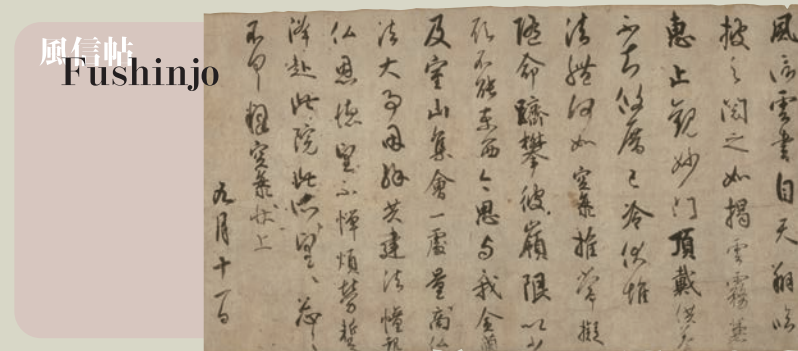 風信帖
Fushinjo
風信雲書自天翔臨
披之閱之如揭雲霧兼
惠止觀妙門頂戴供
不知攸厝已冷伏惟
法體何如空海推常擬
隨命躋攀彼嶺限以少
願不能東西今思与我金蘭
及室山集會一處量商仏
法大事因緣共建法幢報
仏恩德望不憚煩勞蹔
降赴此院此所望々忩々
不具釋空海狀上
九月十一日